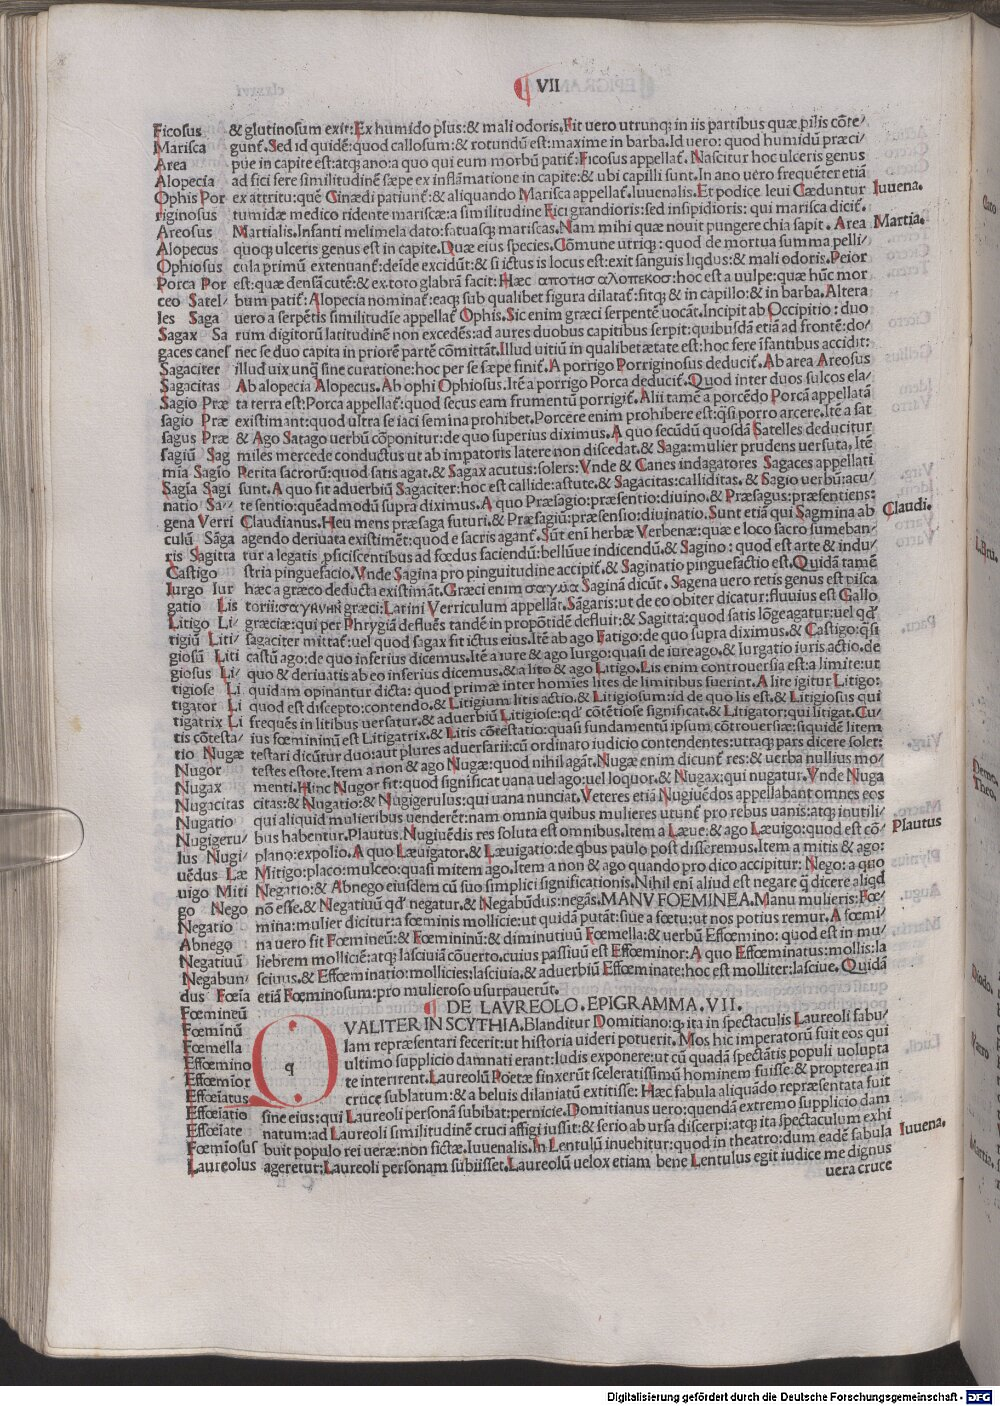 VII
Ficosus
Marisca
Area
Alopecia
Ophis Por
riginosus
Areosus
Alopecus
Ophiosus
Porca Por
ceo Satel/
les Saga
Sagax Sa
gaces canes
Sagaciter
Sagacitas
Sagio Præ
sagio Præ
sagus Præ
sagiū Sag
mīa Sagio
Sagīa Sagi
natio Sa/
gena Verri
culū Sāga
ris Sagitta
Castigo
Iurgo Iur
gatio Lis
Litigo Li/
tigiū Liti/
giosū Liti
giosus Li/
tigiose Li
tigator Li
tigatrix Li
tis cōtesta/
tio Nugæ
Nugor
Nugax
Nugacitas
Nugatio
Nugigeru/
lus Nugi/
uēdus Læ
uigo Miti
go Nego
Negatio
Abnego
Negatiuū
Negabun/
dus Fœīa
Fœmineū
Fœminū
Fœmella
Effœmino
Effœmīor
Effœīatus
Effœīatio
Effœīate
Fœmīosus
Laureolus
& glutinosum exit: Ex humido plus: & mali odoris. Fit uero utrunq; in iis partibus quæ pilis cōte/
gunt̄. Sed id quidē: quod callosum: & rotundū est: maxime in barba. Id uero: quod humidū præci/
pue in capite est: atq; ano: a quo qui eum morbū patit̄: Ficosus appellat̄. Nascitur hoc ulceris genus
ad fici fere similitudinē sæpe ex inflamatione in capite: & ubi capilli sunt. In ano uero frequēter etiā
ex attritu: quē Cinædi patiunt̄: & aliquando Marisca appellat̄. Iuuenalis. Et podice leui Cæduntur
tumidæ medico ridente mariscæ: a similitudine Fici grandioris: sed insipidioris: qui marisca dicit̄.
Martialis. Infanti melimela dato: fatuasq; mariscas. Nam mihi quæ nouit pungere chia sapit. Area
quoq; ulceris genus est in capite. Duæ eius species. Cōmune utriq;: quod de mortua summa pelli/
cula primū extenuant̄: deīde excidūt: & si ictus is locus est: exit sanguis liqdus: & mali odoris. Peior
est: quæ densā cutē: & ex toto glabrā facit: Hæc αποτησ αλοπεκοσ: hoc est a uulpe: quæ hūc mor
bum patit̄: Alopecia nominat̄: eaq; sub qualibet figura dilatat̄: fitq; & in capillo: & in barba. Altera
uero a serpētis similitudīe appellat̄ Ophis. Sic enim græci serpentē uocāt. Incipit ab Occipitio: duo
rum digitorū latitudinē non excedēs: ad aures duobus capitibus serpit: quibusdā etiā ad frontē: do/
nec se duo capita in priorē partē cōmittāt. Illud uitiū in qualibet ætate est: hoc fere īfantibus accidit:
illud uix unq̄ sine curatione: hoc per se sæpe finit̄. A porrigo Porriginosus deducit̄. Ab area Areosus
Ab alopecia Alopecus. Ab ophi Ophiosus. Itē a porrigo Porca deducit̄. Quod inter duos sulcos ela/
ta terra est: Porca appellat̄: quod secus eam frumentū porrigit̄. Alii tamē a porcēdo Porcā appellatā
existimant: quod ultra se iaci semina prohibet. Porcere enim prohibere est: q̄si porro arcere. Itē a sat
& Ago Satago uerbū cōponitur: de quo superius diximus. A quo secūdū quosdā Satelles deducitur
miles mercede conductus ut ab impatoris latere non discedat. & Saga: mulier prudens uersuta. Itē
Perita sacrorū: quod satis agat. & Sagax acutus: solers: Vnde & Canes indagatores Sagaces appellati
sunt. A quo fit aduerbiū Sagaciter: hoc est callide: astute. & Sagacitas: calliditas. & Sagio uerbū: acu/
te sentio: quēadmodū supra diximus. A quo Præsagio: præsentio: diuino. & Præsagus: præsentiens:
Claudianus. Heu mens præsaga futuri. & Præsagiū: præsensio: diuinatio. Sunt etiā qui Sagmina ab
agendo deriuata existimēt: quod e sacris agant̄. Sūt enī herbæ Verbenæ: quæ e loco sacro sumeban/
tur a legatis ꝓficiscentibus ad fœdus faciendū: bellūue indicendū. & Sagino: quod est arte & indu/
stria pinguefacio. Vnde Sagina pro pinguitudine accipit̄. & Saginatio pinguefactio est. Quidā tamē
hæc a græco deducta existimāt. Græci enim σαγμα Saginā dicūt. Sagena uero retis genus est pisca
torii: σαγηνη græci: Latini Verriculum appellāt. Sāgaris: ut de eo obiter dicatur: fluuius est Gallo
græciæ: qui per Phrygiā defluēs tandē in propōtidē defluit: & Sagitta: quod satis lōge agatur: uel qd̓
sagaciter mittat̄: uel quod sagax sit ictus eius. Itē ab ago Fatigo: de quo supra diximus. & Castigo: q̄si
castū ago: de quo inferius dicemus. Itē a iure & ago Iurgo: quasi de iure ago. & Iurgatio iuris actio. de
quo & deriuatis ab eo inferius dicemus. & a lito & ago Litigo. Lis enim controuersia est: a limite: ut
quidam opinantur dicta: quod primæ inter homīes lites de limitibus fuerint. A lite igitur Litigo:
quod est discepto: contendo. & Litigium litis actio. & Litigiosum: id de quo lis est. & Litigiosus qui
frequēs in litibus uersatur. & aduerbiū Litigiose: qd̓ cōtētiose significat. & Litigator: qui litigat. Cu/
ius fœmininū est Litigatrix. & Litis cōtestatio: quasi fundamentū ipsum cōtrouersiæ: siquidē litem
testari dicūtur duo: aut plures aduersarii: cū ordinato iudicio contendentes: utraq; pars dicere solet:
testes estote. Item a non & ago Nugæ: quod nihil agāt. Nugæ enim dicunt̄ res: & uerba nullius mo/
menti. Hinc Nugor fit: quod significat uana uel ago: uel loquor. & Nugax: qui nugatur. Vnde Nuga
citas: & Nugatio: & Nugigerulus: qui uana nunciat. Veteres etiā Nugiuēdos appellabant omnes eos
qui aliquid mulieribus uenderēt: nam omnia quibus mulieres utunt̄ pro rebus uanis: atq; inutili/
bus habentur. Plautus. Nugiuēdis res soluta est omnibus. Item a Læue: & ago Læuigo: quod est cō/
plano: expolio. A quo Læuigator. & Læuigatio: de qbus paulo post disseremus. Item a mitis & ago:
Mitigo: placo: mulceo: quasi mitem ago. Item a non & ago quando pro dico accipitur: Nego: a quo
Negatio: & Abnego eiusdem cū suo simplici significationis. Nihil enī aliud est negare q̄ dicere aliqd
nō esse. & Negatiuū qd̓ negatur. & Negabūdus: negās. MANV FOEMINEA. Manu mulieris: Fœ/
mina: mulier dicitur: a fœminis mollicie: ut quidā putāt: siue a fœtu: ut nos potius remur. A fœmi/
na uero fit Fœmineū: & Fœmininū: & diminutiuū Fœmella: & uerbū Effœmino: quod est in mu/
liebrem molliciē: atq; lasciuiā cōuerto. cuius passiuū est Effœminor: A quo Effœminatus: mollis: la
sciuus. & Effœminatio: mollicies: lasciuia. & aduerbiū Effœminate: hoc est molliter: lasciue. Quidā
etiā Fœminosum: pro mulieroso usurpauerūt.
DE LAVREOLO. EPIGRAMMA. VII.
q
VALITER IN SCYTHIA. Blanditur Domitiano: q; ita in spectaculis Laureoli fabu/
lam repræsentari fecerit: ut historia uideri potuerit. Mos hic imperatorū fuit eos qui
ultimo supplicio damnati erant: ludis exponere: ut cū quadā spectātis populi uolupta
te interirent. Laureolū Poetæ finxerūt sceleratissimū hominem fuisse: & propterea in
crucē sublatum: & a beluis dilaniatū extitisse: Hæc fabula aliquādo repræsentata fuit
sine eius: qui Laureoli personā subibat: pernicie. Domitianus uero: quendā extremo supplicio dam
natum: ad Laureoli similitudinē cruci affigi iussit: & serio ab ursa discerpi: atq; ita spectaculum exhi
buit populo rei ueræ: non fictæ. Iuuenalis. In Lentulū inuehitur: quod in theatro: dum eadē fabula
ageretur: Laureoli personam subiisset. Laureolū uelox etiam bene Lentulus egit iudice me dignus
uera cruce
Iuuena.
Martia.
Claudi.
Plautus
Iuuena.
Digitalisierung gefördert durch die Deutsche Forschungsgemeinschaft - DFG